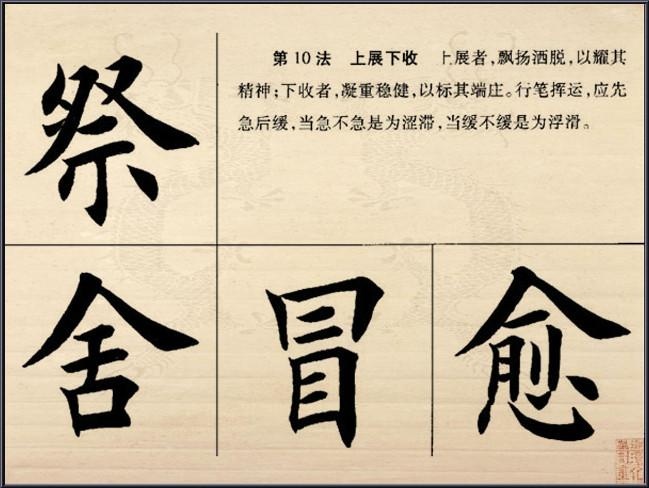 第10法 上展下收 上展者，飘扬洒脱，以耀其
精神；下收者，凝重稳健，以标其端庄。行笔挥运，应先
急后缓，当急不急是为涩滞，当缓不缓是为浮滑。
祭
舍 冒 愈